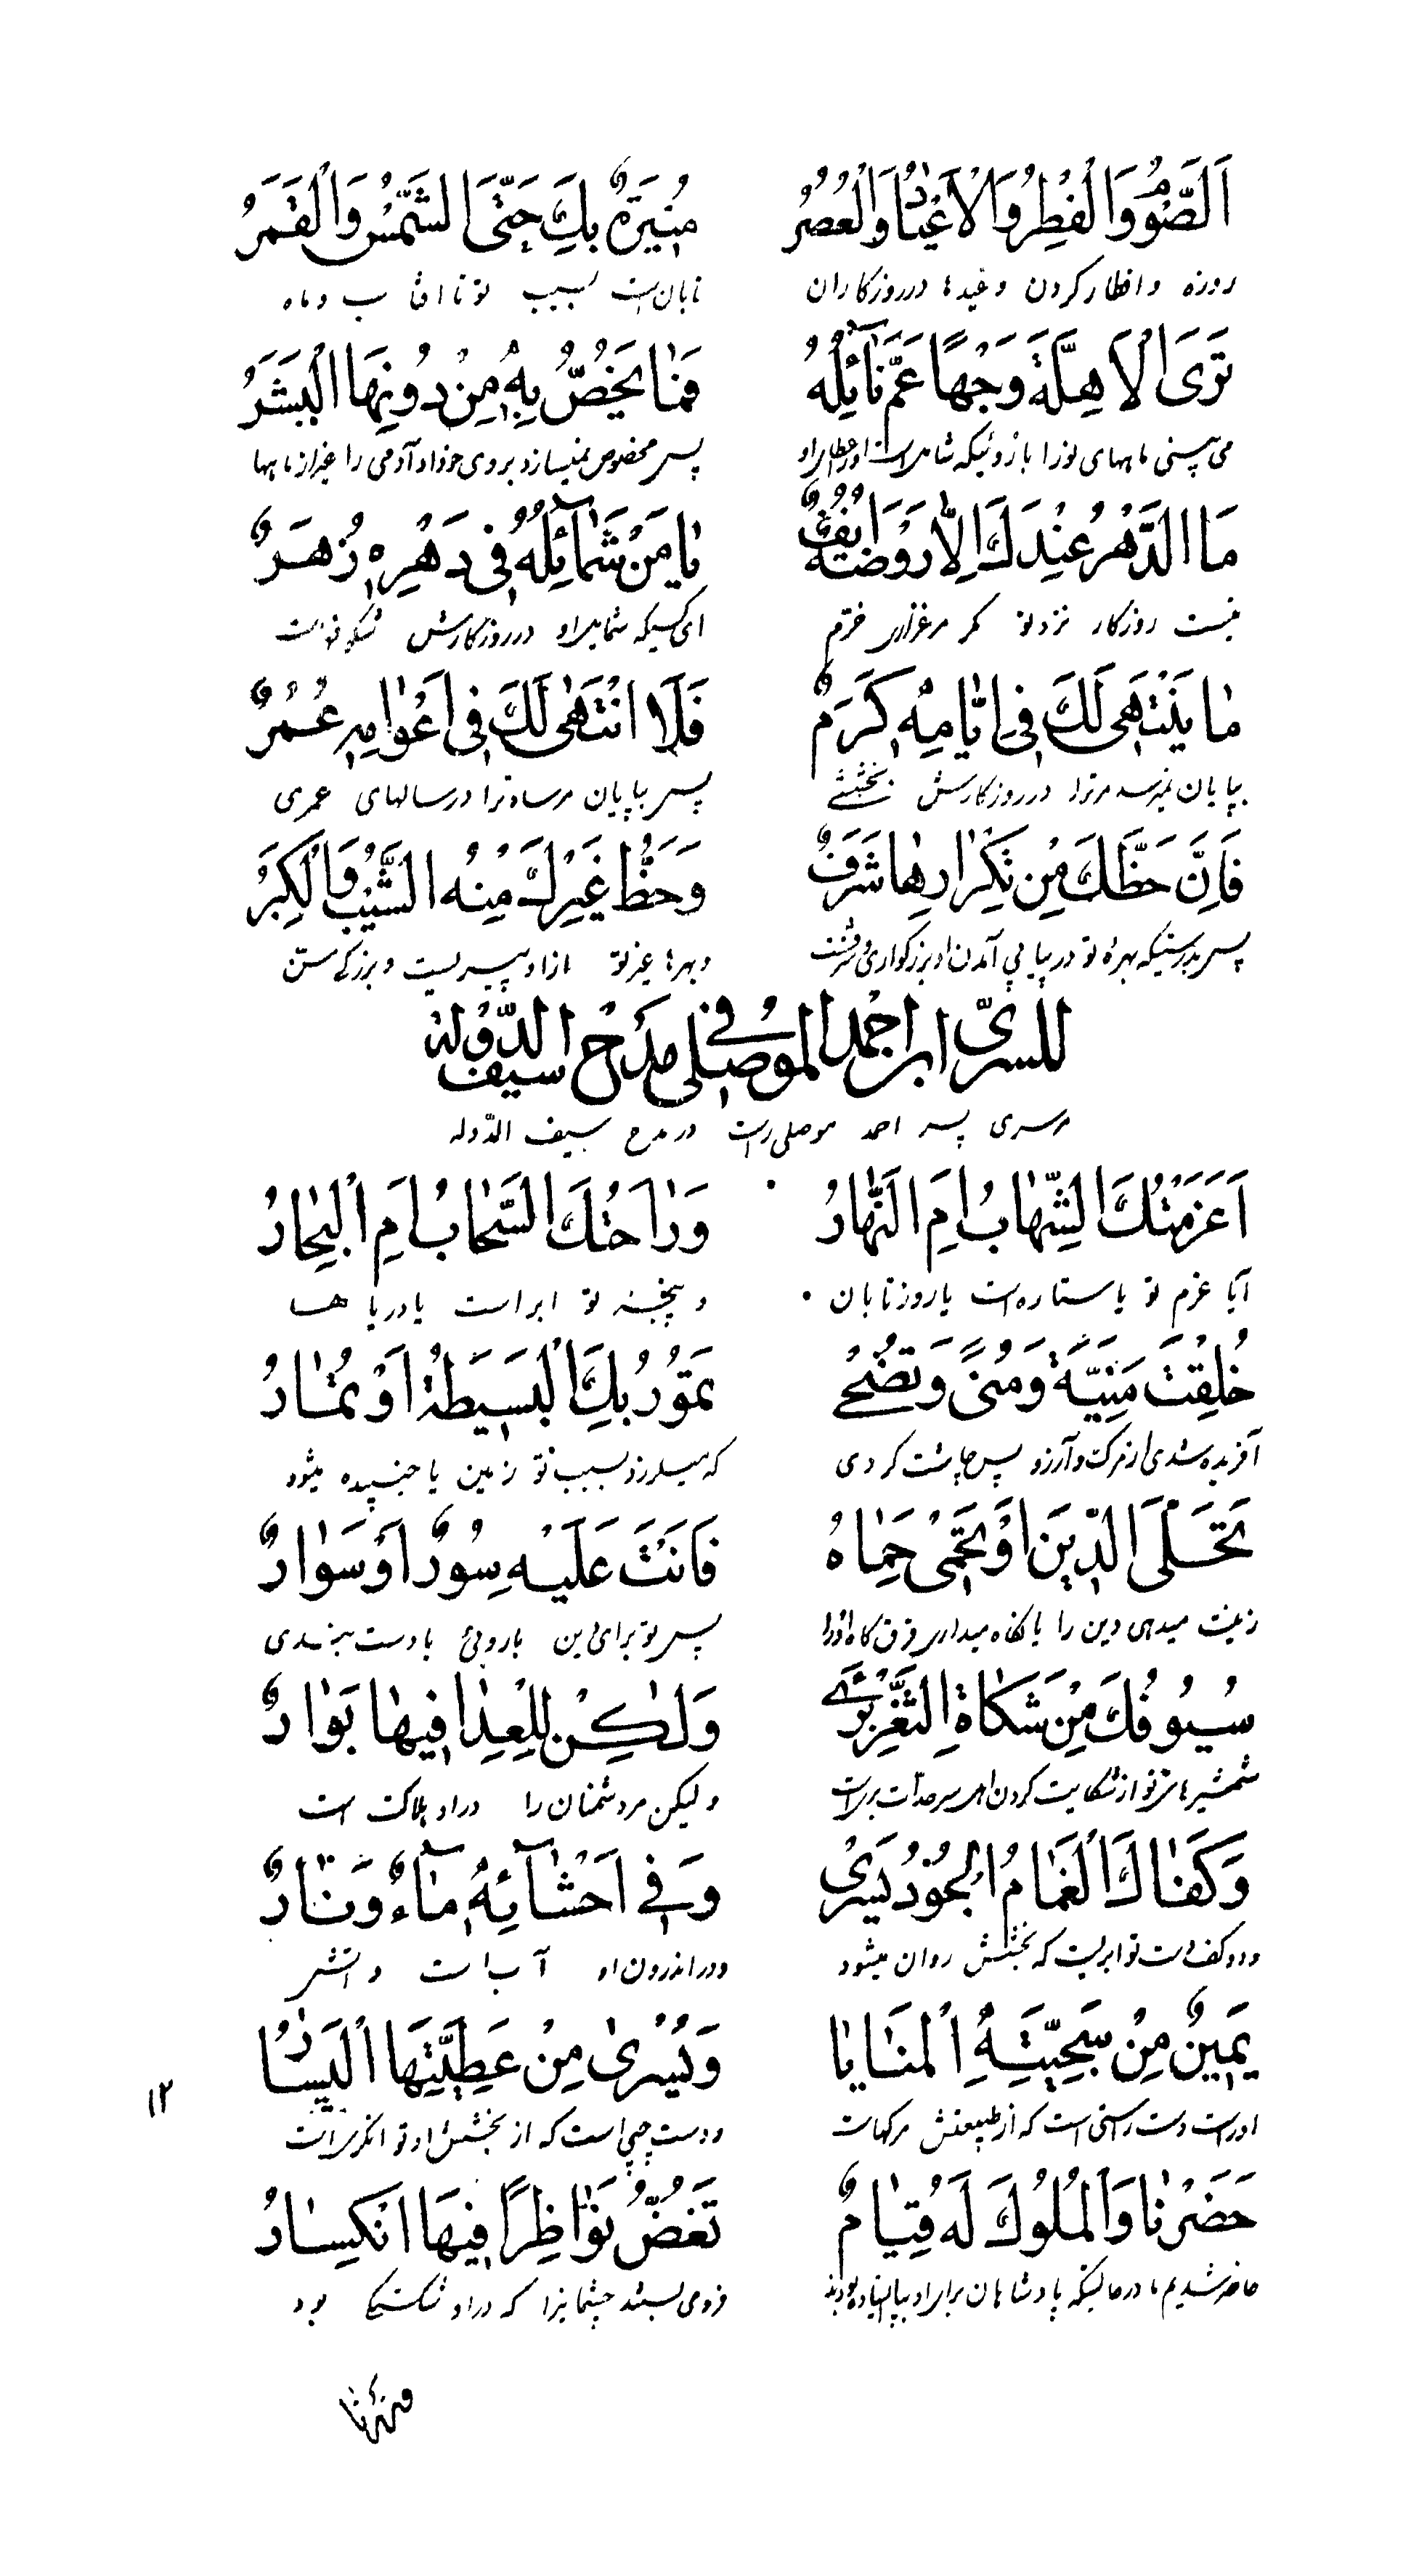 اَلصَّوْمُ وَالْفِطْرُ وَالْاَعْيٰادُ وَالْعُصُرُ مُنِيرَةٌ بِكَ حَتَّى الشَّمْسُ وَالْقَمَرُ
روزه و افطار کردن و عیدها و روزکاران تابان است بسبب تو تا آفتاب و ماه
تَرَى الْاَهِلَّةَ وَجْهًا عَمَّ نٰآئِلُهُ فَمٰا يَخُصُّ بِهِ مِنْ دُونِهَا الْبَشَرُ
می بینی ماههای نورا باروئیکه شامل است اورا عطای او پس مخصوص نمیسازد بروی خود او آدمی را غیر از ماهها
مَا الدَّهْرُ عِنْدَكَ اِلّٰا رَوْضَةٌ اُنُفٌ يٰا مَنْ شَمٰآئِلُهُ فِى دَهْرِهِ زَهَرٌ
نیست روزکار نزد تو مکر مرغزاری خرّم ای کسیکه شمایل او در روزکارش شکوفه است
مٰا يَنْتَهِى لَكَ فِى اَيّٰامِهِ كَرَمٌ فَلَا انْتَهٰى لَكَ فِى اَعْوٰامِهِ عُمُرٌ
بپایان نمیرسد مر ترا در روزکارش بخششی پس بپایان مرساد ترا در سالهای عمری
فَاِنَّ حَظَّكَ مِنْ تَكْرٰارِهٰا شَرَفٌ وَحَظُّ غَيْرِكَ مِنْهُ الشَّيْبُ وَالْكِبَرُ
پس بدرستیکه بهرهٔ تو در پیاپی آمدن او بزرکواری و شرفست و بهرهٔ غیر تو از او پیریست و بزرکی سنّ
للسرىّ ابن احمد الموصلى فى مدح سيف الدّولة
مر سری پسر احمد موصلی راست در مدح سیف الدّوله
اَعَزْمَتُكَ الشِّهٰابُ اَمِ النَّهٰارُ وَرٰاحَتُكَ السَّحٰابُ اَمِ الْبِحٰارُ
آیا عزم تو یا ستاره است یا روز تابان و پنجهٔ تو ابر است یا دریا ها
خُلِقْتَ مَنِيَّةً وَمُنًى وَتُضْحِى تَمُورُ بِكَ الْبَسِيطَةُ اَوْ تُمٰارُ
آفریده شدی از مرک و آرزو پس چاشت کردی که میلرزد بسبب تو زمین یا جنبیده میشود
تُحَلِّى الدِّينَ اَوْ تَحْمِى حِمٰاهُ فَاَنْتَ عَلَيْهِ سُورٌ اَوْ سِوٰارٌ
زینت میدهی دین را یا نکاه میداری قرق کاه او را پس تو بر این باروئی یا دست بندی
سُيُوفُكَ مِنْ شَكٰاةِ الثَّغْرِ بُرْءٌ وَلٰكِنْ لِلْعِدٰا فِيهٰا بَوٰارٌ
شمشیرهای تو از شکایت کردن اهل سرحدات برء است ولیکن مر دشمنان را در او هلاکت است
وَكَفّٰاكَ الْغَمٰامُ الْجُوْدُ يَسْرِى وَفِى اَحْشٰآئِهِ مٰآءٌ وَنٰارٌ
و دو کف دست تو ابریست که بخشش روان میشود و در اندرون او آب است و آتش
يَمِينٌ مِنْ سَجِيَّتِهِ الْمَنٰايٰا وَيُسْرٰى مِنْ عَطِيَّتِهَا الْيَسٰارُ
او راست دست راستی است که از طبیعتش مرکهاست و دست چپی است که از بخشش او توانکریست
١٢
حَضَرْنٰا وَالْمُلُوكُ لَهُ قِيٰامٌ تَغُضُّ نَوٰاظِرًا فِيهَا انْكِسٰارُ
حاضر شدیم ما در حالیکه پادشاهان برای او بپا ایستاده بودند فرو می بستند چشمانیرا که در او شکستکی بود